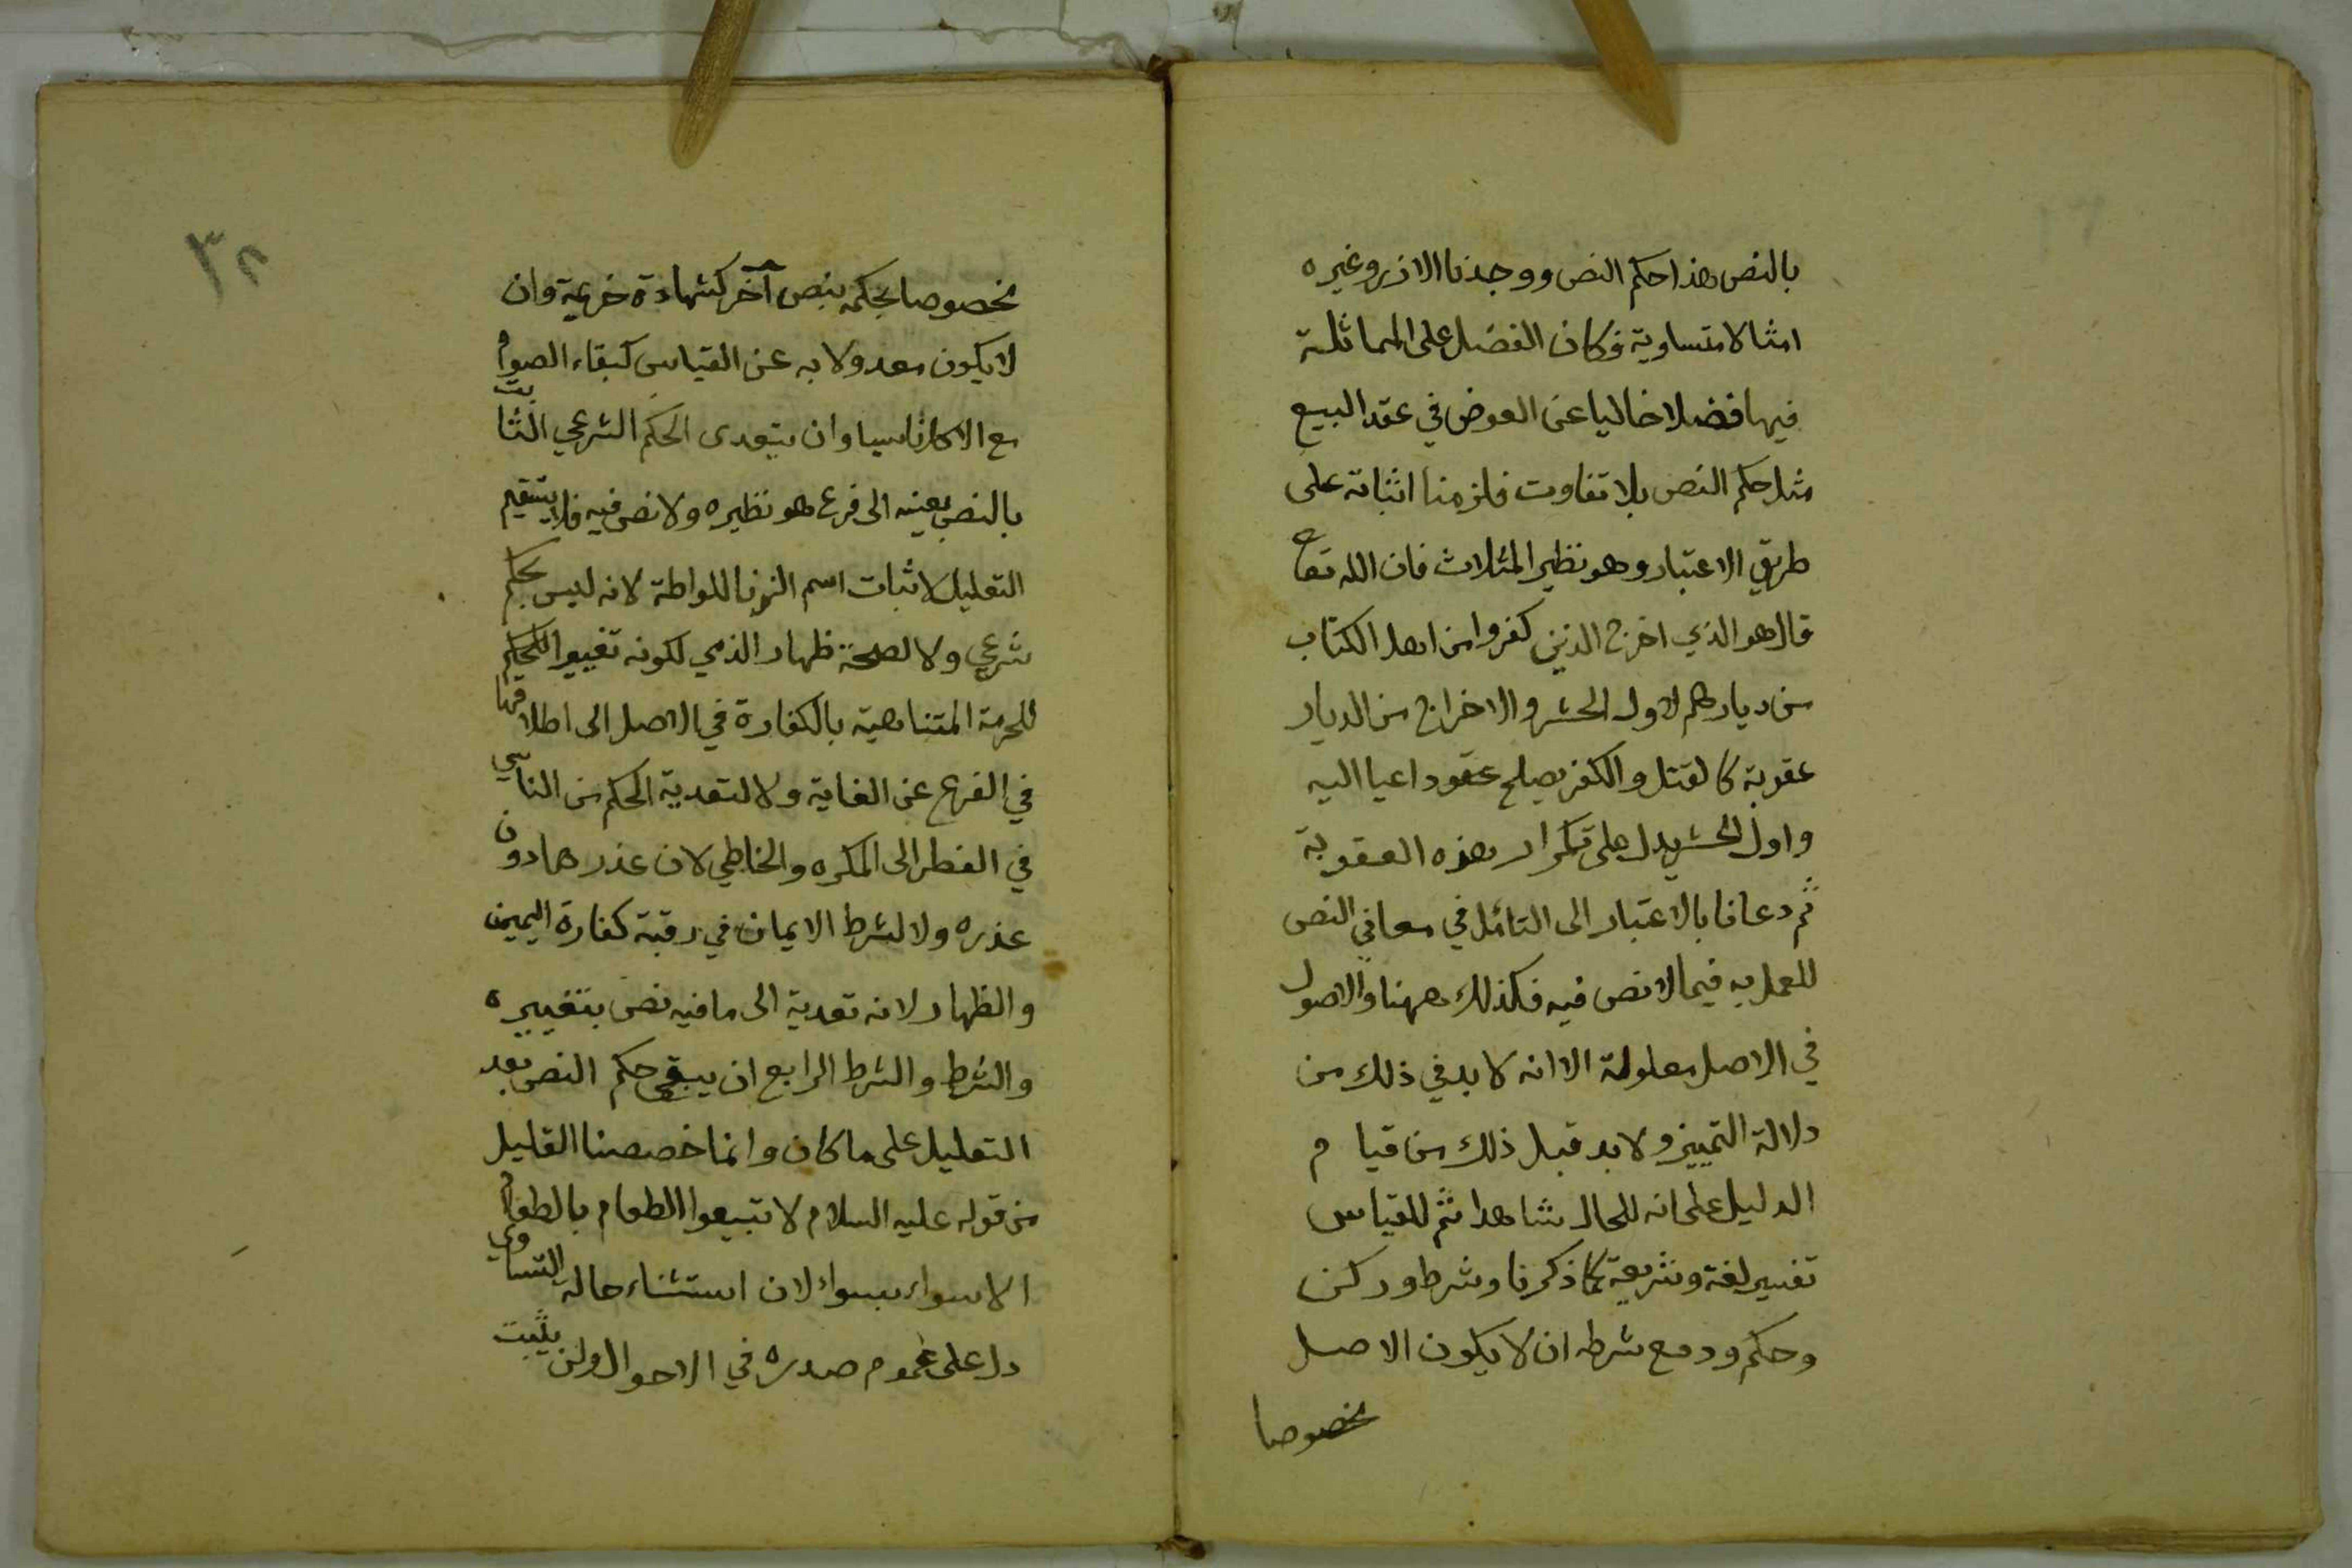 بالنص هذا حكم النص ووجدنا الارز وغيره
امثالا متساوية فكان الفضل على المماثلة
فيها فضلا خاليا عن العوض في عقد البيع
مثل حكم النص بلا تفاوت فلزمنا اثباته على
طريق الاعتبار وهو نظير المثلات فان الله تعا
قال هو الذي اخرج الذين كفروا من اهل الكتاب
من ديارهم لاول الحشر والاخراج من الديار
عقوبة كالقتل والكفر يصلح عقوداعيا اليه
واول الحشر يدل على تكرار هذه العقوبة
ثم دعانا بالاعتبار الى التأمل في معاني النص
للعمل به فيما لا نص فيه فكذلك ههنا والاصول
في الاصل معلولة الا انه لا بد في ذلك من
دلالة التمييز ولا بد قبل ذلك من قيام
الدليل على انه للحال شاهدا ثم للقياس
تفسير لغة وشريعة كما ذكرنا وشرط وركن
وحكم ودفع شرطه ان لا يكون الاصل
مخصوصا
٣٢
مخصوصا بحكمه بنص آخر كشهادة خزيمة وان
لا يكون معدولا به عن القياس كبقاء الصوم
مع الاكل ناسيا وان يتعدى الحكم الشرعي الثابت
بالنص بعينه الى فرع هو نظيره ولا نص فيه فلا يستقيم
التعليل لاثبات اسم الزنا للواطة لانه ليس بحكم
شرعي ولا لصحة ظهار الذمي لكونه تغييرا للحكم
للحرمة المتناهية بالكفارة في الاصل الى اطلاقها
في الفرع عن الغاية ولا لتعدية الحكم من الناسي
في الفطر الى المكره والخاطي لان عذرهما دون
عذره ولا لشرط الايمان في رقبة كفارة اليمين
والظهار لانه تعدية الى ما فيه نص بتغييره
والشرط والشرط الرابع ان يبقى حكم النص بعد
التعليل على ما كان وانما خصصنا القليل
من قوله عليه السلام لا تبيعوا الطعام بالطعام
الا سواء بسواء لان استثناء حالة التساوي
دل على عموم صدره في الاحوال ولن يثبت